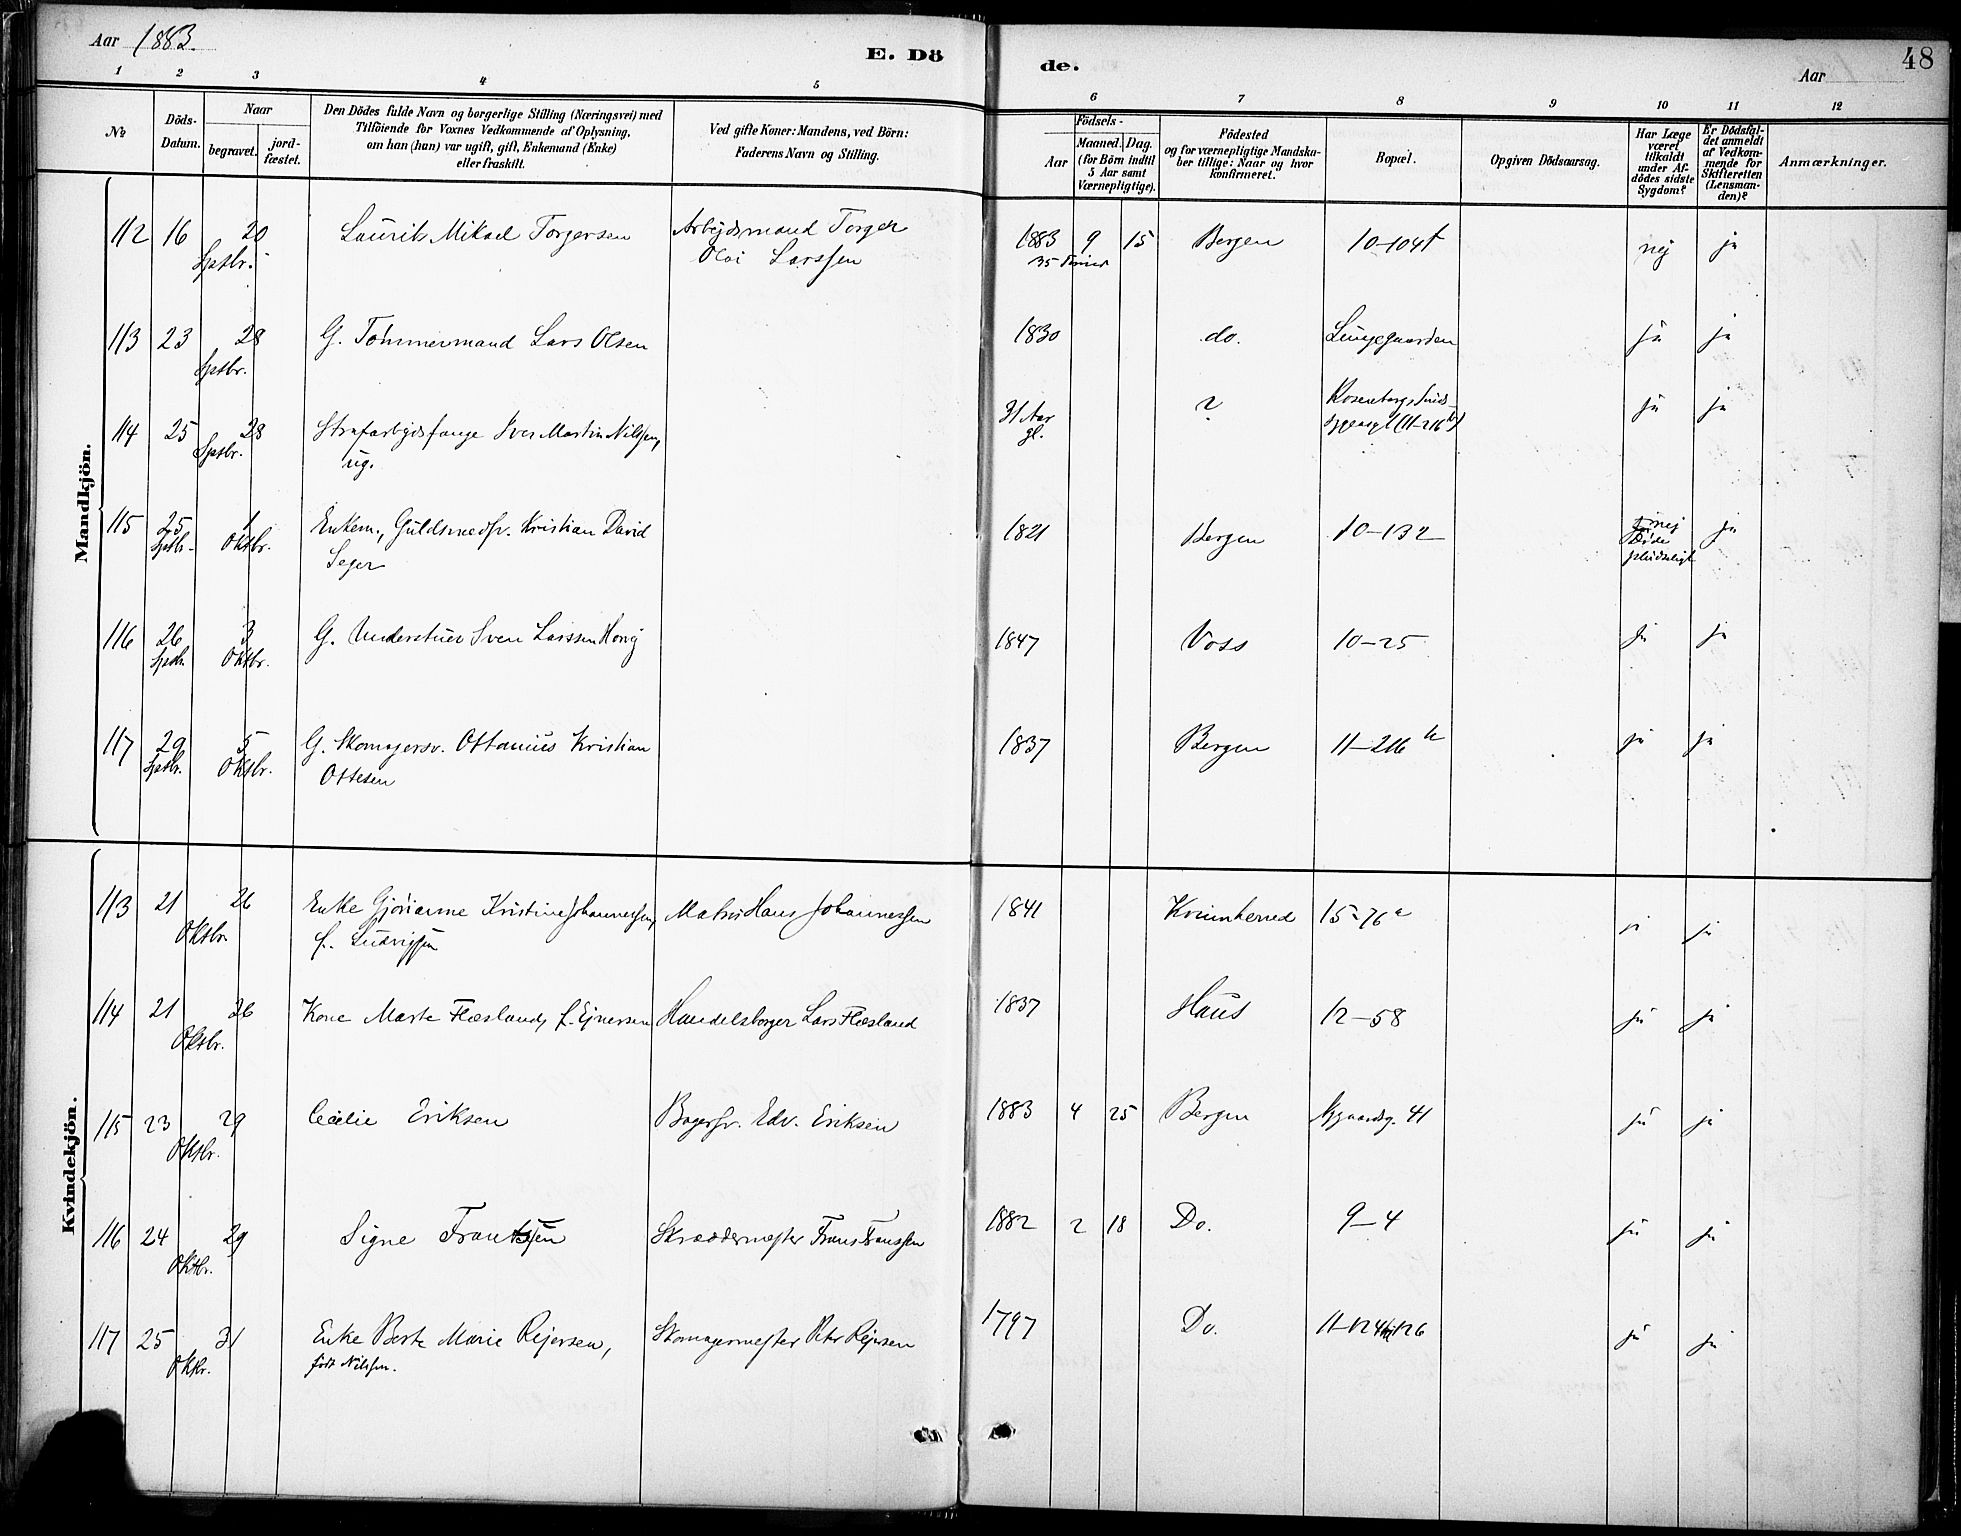 Aar 1883.
E. Dö
de.
Aar
48
1 2 3 4 5 6 7 8 9 10 11 12
No
Döds-
Datum.
Naar
begravet.
jord-
fæstet.
Den Dödes fulde Navn og borgerlige Stilling (Næringsvei) med
Tilföiende for Voxnes Vedkommende af Oplysning,
om han (hun) var ugift, gift, Enkemand (Enke)
eller fraskilt.
Ved gifte Koner: Mandens, ved Börn:
Faderens Navn og Stilling.
Födsels-
Aar
Maaned. Dag.
(for Börn indtil
5 Aar samt
Værnepligtige).
Födested
og for værnepligtige Mandska-
ber tillige: Naar og hvor
konfirmeret.
Bopæl.
Opgiven Dödsaarsag.
Har Læge
været
tilkaldt
under Af-
dödes sidste
Sygdom?
Er Dödsfal-
det anmeldt
af Vedkom-
mende for
Skifteretten
(Lensman-
den)?
Anmærkninger.
Mandkjön.
112 16 20 Laurits Mikael Torgersen Arbejdsmand Torger 1883 9 15 Bergen 10-104 nej ja
Sptbr. Larssen 35
113 23 28 G. Tömmermand Lars Olsen 1830 do. Lungegaarden ja ja
Sptbr.
114 25 28 Strafarbejdsfange Iver Martin Nilssen, 31 Aar ? Rosenbergs ja ja
Sptbr. ug. gl. (11-216 b)
115 25 1 Enkem., Guldsmedsv. Kristian David 1821 Bergen 10-132 nej ja
Sptbr. Oktbr. Seger Døde
pludseligt
116 26 3 G. Sven Larssen 1847 Voss 10-25 ja ja
Sptbr. Oktbr.
117 29 5 G. Skomagersv. Ottanius Kristian 1837 Bergen 11-216 b ja ja
Sptbr. Oktbr. Ottesen
Kvindekjön.
113 21 26 Enke Gjorianne Kristine Johannessen, Matros Hans Johannessen 1841 Kvinnherred 15-76 a ja ja
Oktbr. f. Ludvigsen
114 21 26 Kone Marte Flæsland, f. Ejnersen Handelsborger Lars Flæsland 1837 Haus 12-58 ja ja
Oktbr.
115 23 29 Cecilie Eriksen Bagersv. Edv. Eriksen 1883 4 25 Bergen Nygaardsg. 41 ja ja
Oktbr.
116 24 29 Signe Frantssen Skræddermester Frans Franssen 1882 2 18 Do. 9-4 ja ja
Oktbr.
117 25 31 Enke Berte Marie Rejersen, Skomagermester Petr Rejersen 1797 Do. 11-124 126 ja ja
Oktbr. født Nilssen.